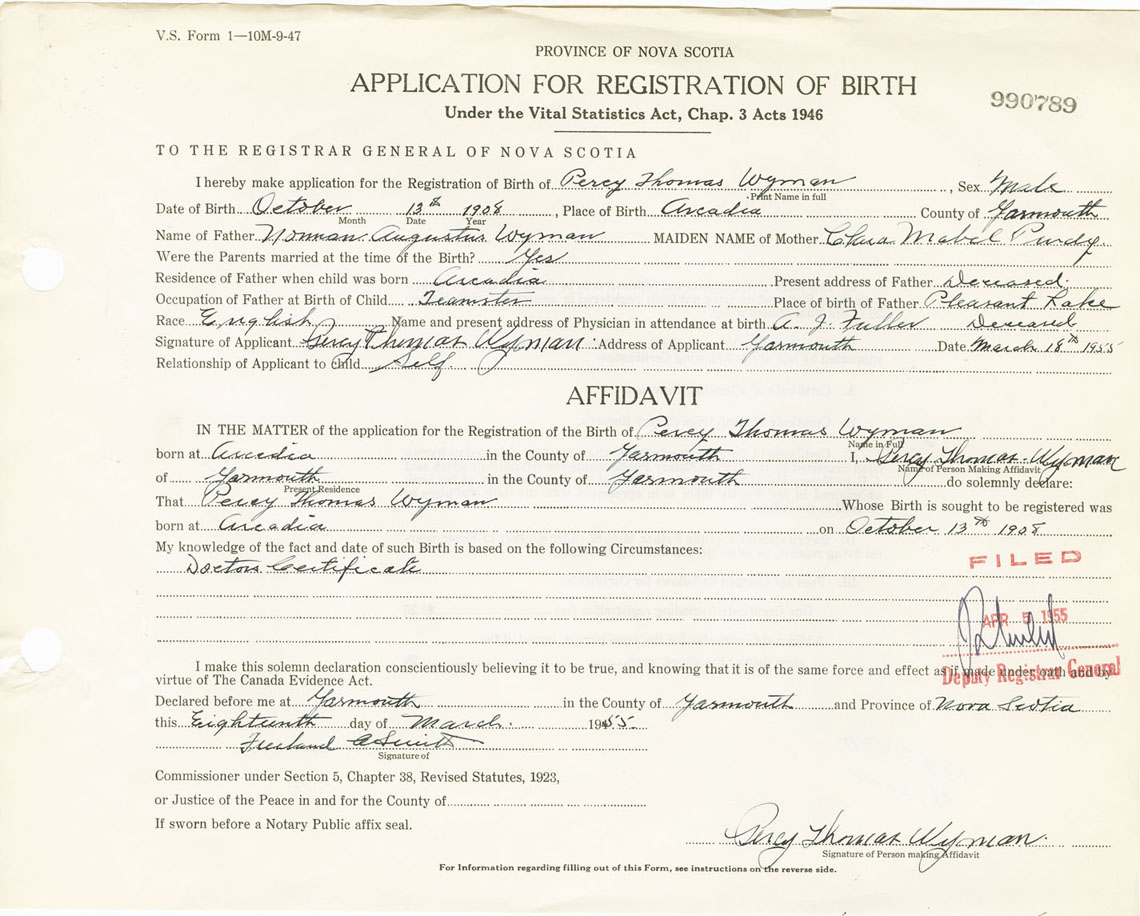 V.S. Form 1—10M-9-47
PROVINCE OF NOVA SCOTIA
APPLICATION FOR REGISTRATION OF BIRTH
990789
Under the Vital Statistics Act, Chap. 3 Acts 1946
TO THE REGISTRAR GENERAL OF NOVA SCOTIA
I hereby make application for the Registration of Birth of Percy Thomas Wyman, Sex Male
Print Name in full
Date of Birth October 13th 1908, Place of Birth Arcadia County of Yarmouth
Month Date Year
Name of Father Norman Augustus Wyman MAIDEN NAME of Mother Mabel Purdy
Were the Parents married at the time of the Birth? Yes
Residence of Father when child was born Arcadia Present address of Father Deceased.
Occupation of Father at Birth of Child Teamster Place of birth of Father Pleasant Lake
Race English Name and present address of Physician in attendance at birth A. J. Fuller Deceased
Signature of Applicant Percy Thomas Wyman. Address of Applicant Yarmouth Date March 18th 1955
Relationship of Applicant to child Self.
AFFIDAVIT
IN THE MATTER of the application for the Registration of the Birth of Percy Thomas Wyman
Name in Full
born at Arcadia in the County of Yarmouth I, Percy Thomas Wyman
Name of Person Making Affidavit
of Yarmouth in the County of Yarmouth do solemnly declare:
Present Residence
That Percy Thomas Wyman Whose Birth is sought to be registered was
born at Arcadia on October 13th 1908
My knowledge of the fact and date of such Birth is based on the following Circumstances:
Doctors Certificate
FILED
APR 5 1955
Deputy Registrar General
I make this solemn declaration conscientiously believing it to be true, and knowing that it is of the same force and effect as if made under oath and by
virtue of The Canada Evidence Act.
Declared before me at Yarmouth in the County of Yarmouth and Province of Nova Scotia
this Eighteenth day of March. 1955.
Freeland A Smith
Signature of
Commissioner under Section 5, Chapter 38, Revised Statutes, 1923,
or Justice of the Peace in and for the County of
If sworn before a Notary Public affix seal.
Percy Thomas Wyman.
Signature of Person making Affidavit
For Information regarding filling out of this Form, see instructions on the reverse side.